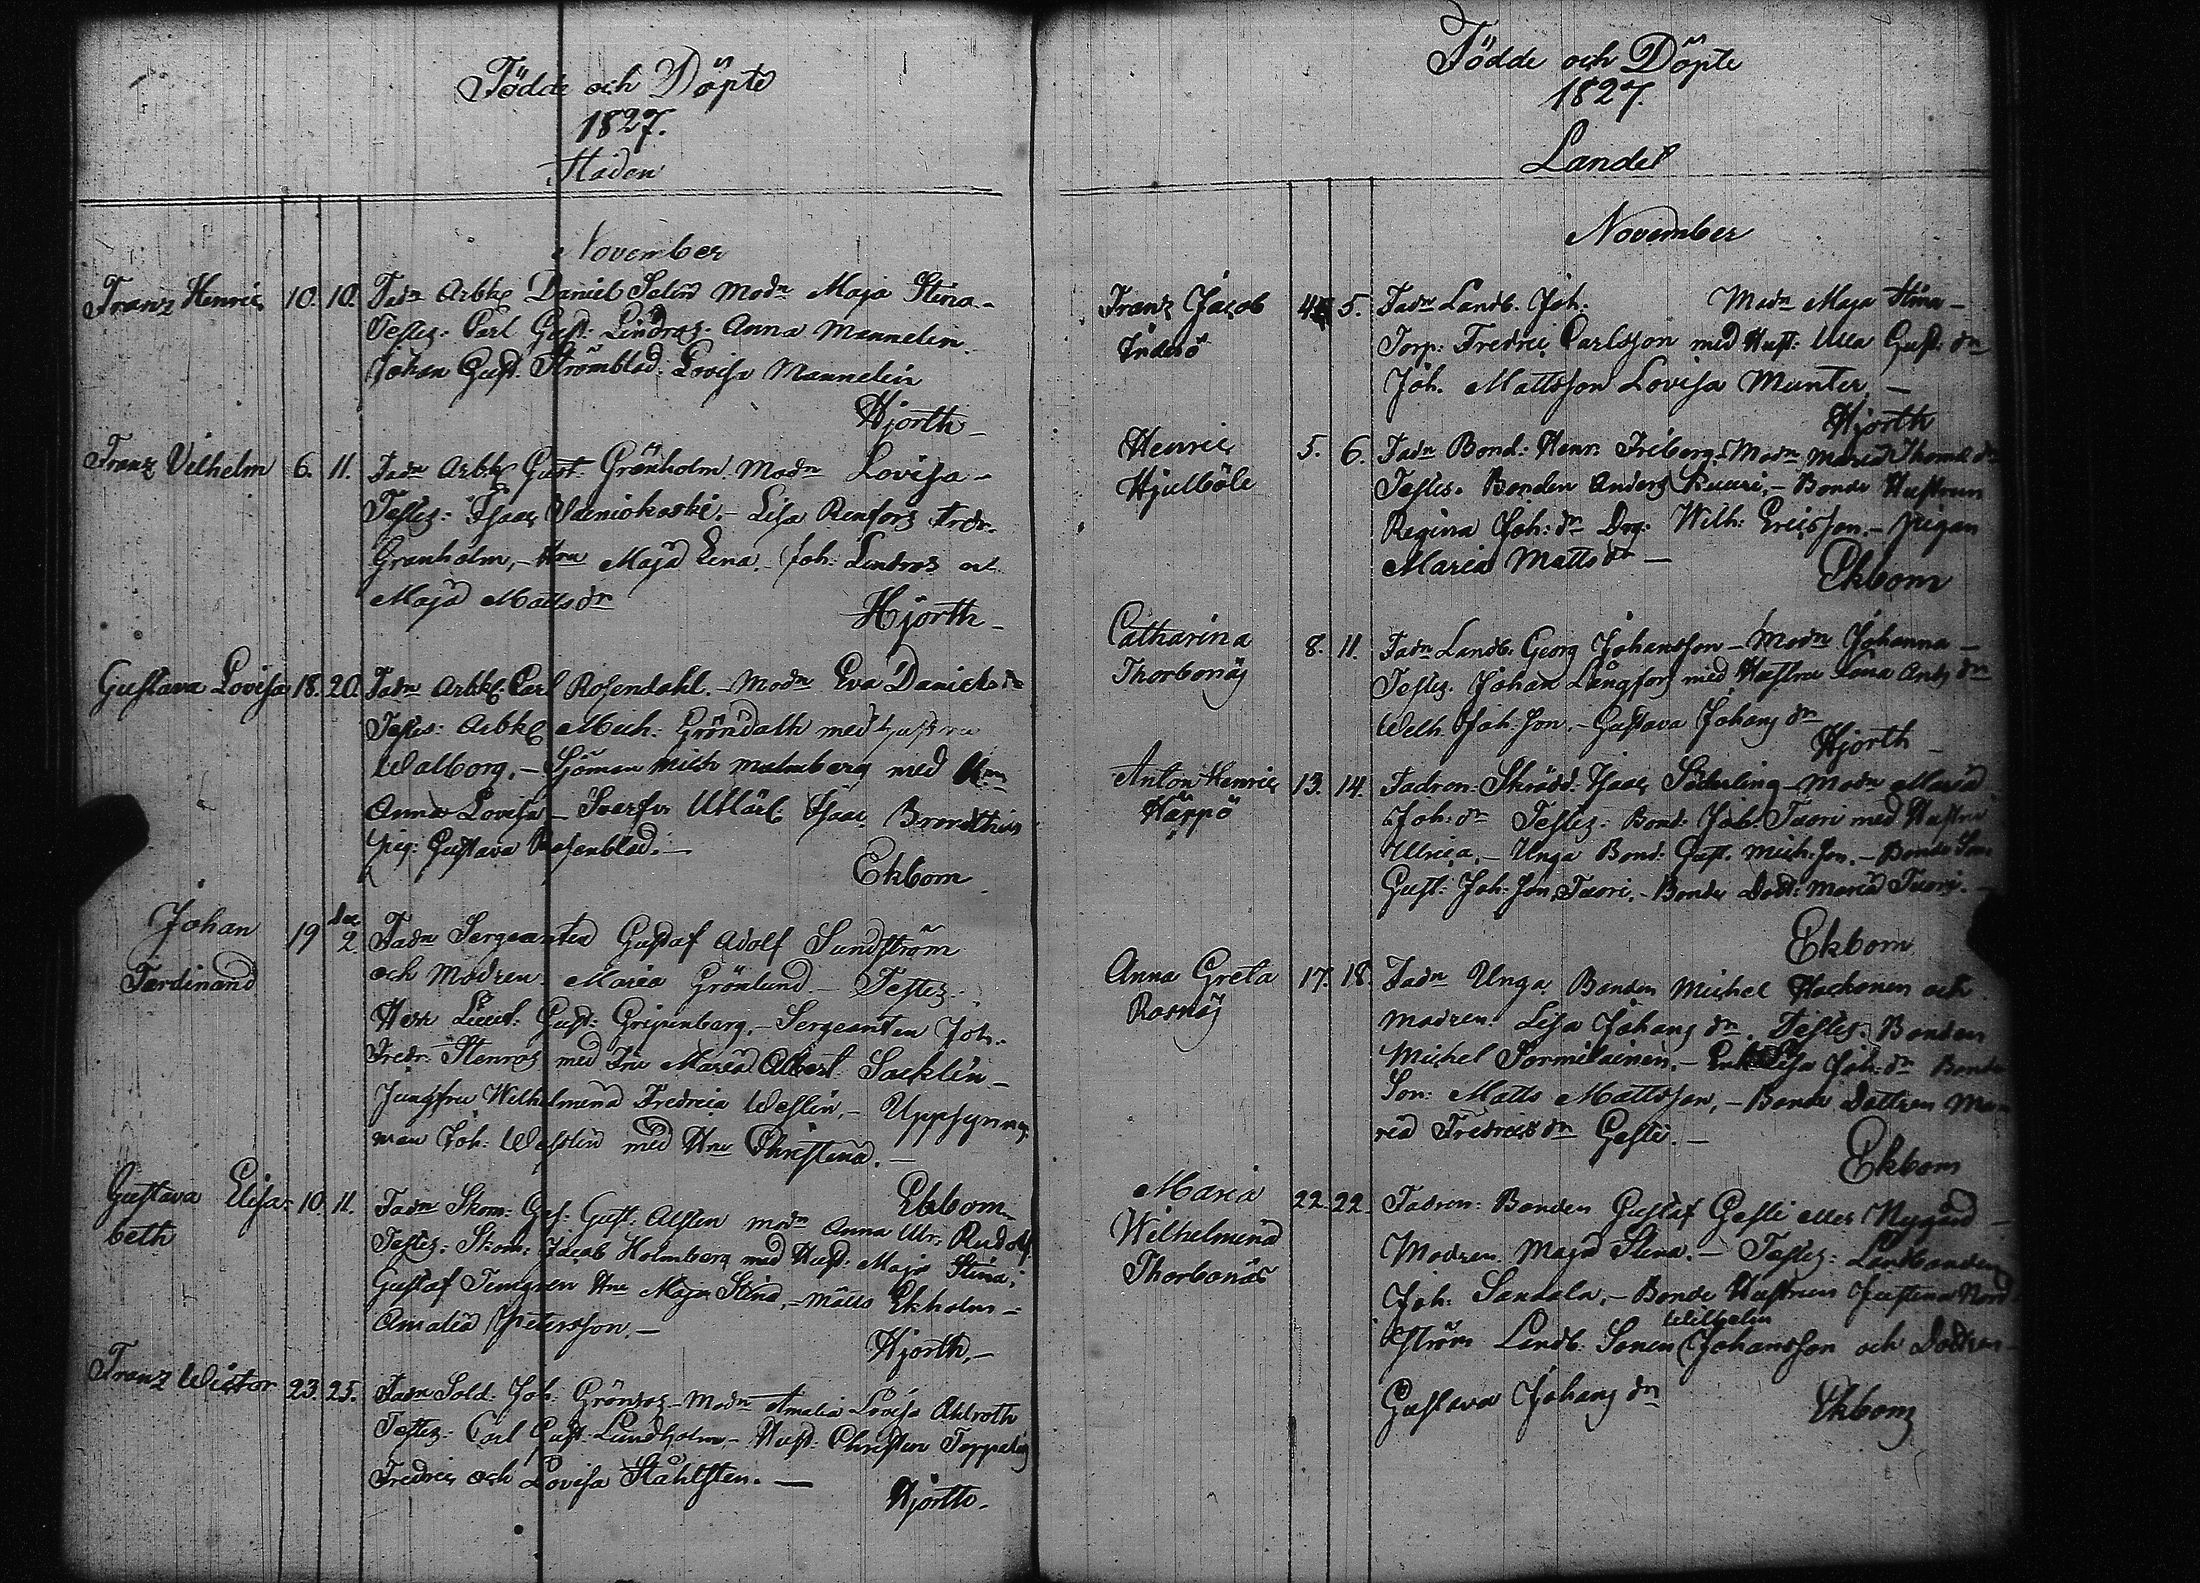 Födde och Döpte
1827.
Staden
November
Franz Henric 10. 10. Fadn Arbk Daniel Salin Modn Maja Stina -
Testes: Carl Gust. Lindroz. Anna Mannelin
Johan Gust. Strömblad. Lovisa Mannelin
Hjorth -
Franz Vilhelm 6. 11. Fadn Arbk Gust. Granholm. Modn Lovisa -
Testes: Isaac Vainiokoski. - Lisa Renfors Fredr.
Granholm, - Hru Maja Lena. - Joh: Lindros och
Maja Matts dr
Hjorth -
Gustava Lovisa 18. 20. Fadn Arbk. Carl Rosendahl. - Modn Eva Daniels dr
Testes: Arbk Mich: Gröndahl med hustru
Walborg. - Sjöman Mich Malmberg med Hru
Anna Lovisa - Isaac
pig: Gustava Rosenblad. -
Ekbom
Johan Ferdinand 19 Dec 2. Fadn Sergeanten Gustaf Adolf Sundström
och Modren Maria Grönlund - Testes:
Herr Lieut: Gust: Gripenberg. - Sergeanten Joh:
Fredr: Stenros med Fru Maria Albert. Sacklén -
Jungfru Wilhelmina Fredrica Weslin. - Uppsynings
man Joh: Weslin med Hru Christina. -
Ekbom
Gustava Elisa- beth 10. 11. Fadn Skom: Ges: Gust: Alsten modn Anna Ulr: Rudolf
Testes: Skom: Jacob Holmberg med Hust: Maja Stina;
Gustaf Hru Maja Stina, - Matts Ekholm -
Amalia Petersson. -
Hjorth, -
Franz Wictor 23. 25. Fadn Sold. Joh: Grönros - Modn Amalia Lovisa Ahlroth
Testes: Carl Gust. Lundholm, - Hust: Christina Toppelius
Fredric och Lovisa Ståhlsten. -
Hjorth.
Födde och Döpte
1827.
Landet
November
Franz Jacob 4. 5. Fadn Landb. Joh. Modn Maja Stina -
Torp: Fredric Carlsson med Hust: Ulla Gust. dr
Joh. Mattsson Lovisa Munter -
Hjorth
Henric Hjulböle 5. 6. Fadn Bond: Henr: Friberg. Modn Maria Thomæ dr
Testes. Bonden Anders Kuuri, - Bonde Hustrun
Regina Joh: dr Drg: Wilh: Ericsson. - pigan
Maria Matts dr -
Ekbom
Catharina Thorbonäs 8. 11. Fadn Landb. Georg Johansson - Modn Johanna -
Testes. Johan Långfors med Hustru Lena Ants dr
Welh. Joh: Son, - Gustava Johans dr
Hjorth -
Anton Henric Häppö 13. 14. Fadren: Skrädd: Isaac Söderling - Modn Maria
Joh: dr Testes: Bond: Joh: Tuori med Hustru
Ulrica. - Unga Bond: Gust. Mich: Son. - Bonde Son
Gust: Joh: Son Tuori. - Bonde Dott: Maria Tuori. -
Ekbom
Anna Greta Rosnäs 17. 18. Fadn Unga Bonden Michel Hackonen och
Modren: Lisa Johans dr. Testes: Bonden
Michel Sormilainen. - Enk Lisa Joh: dr Bonde
Son: Matts Mattsson, - Bonde Dottren Ma-
ria Fredrics dr Gesti. -
Ekbom
Maria Wilhelmina Thorbonäs 22. 22. Fadren: Bonden Gustaf Gesti eller Nygård -
Modren Maja Stina. - Testes: Landbonden
Joh: Sandala, - Bonde Hustrun Justina Nord
ström Landb: Sonen Wilhelm Johansson och Dottren -
Gustava Johans dr
Ekbom